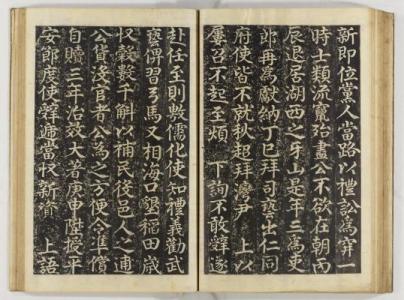 新即位黨人當路以禮訟爲穽一
時士類流竄殆盡公不欲在朝丙
辰退居湖西之牙山是年三爲吏
郎再爲獻納丁巳拜司藝出仁同
府使皆不就秋超拜灣尹 上以
屢召不起至煩 下詢不敢辭遂
赴任至則敷儒化使知禮義勸武
藝俾習弓馬又相海口墾稻田歲
收穀數千斛以補民役邑人之逋
公貨淺官者公爲之方便令準償
自贖三年治效大著庚申陞授平
安節度使辭遞當收新資 上語